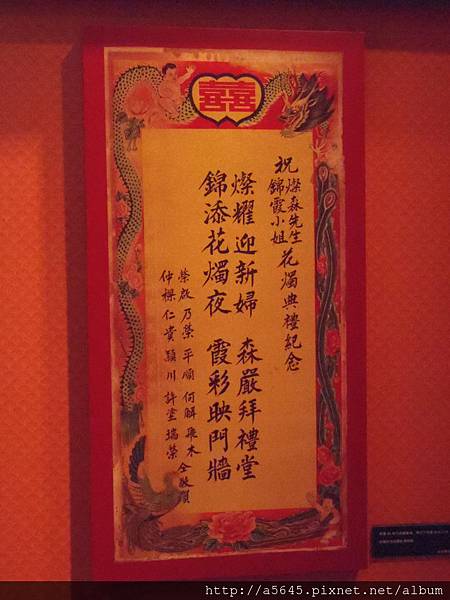 囍
祝
燦森先生
錦霞小姐
花燭典禮紀念
燦耀迎新婦 森嚴拜禮堂
錦添花燭夜 霞彩映門牆
榮啟 乃榮 平順
仲棵 仁貴 穎川 許塗 瑞榮
仝敬賀
http://a5645.pixnet.net/album